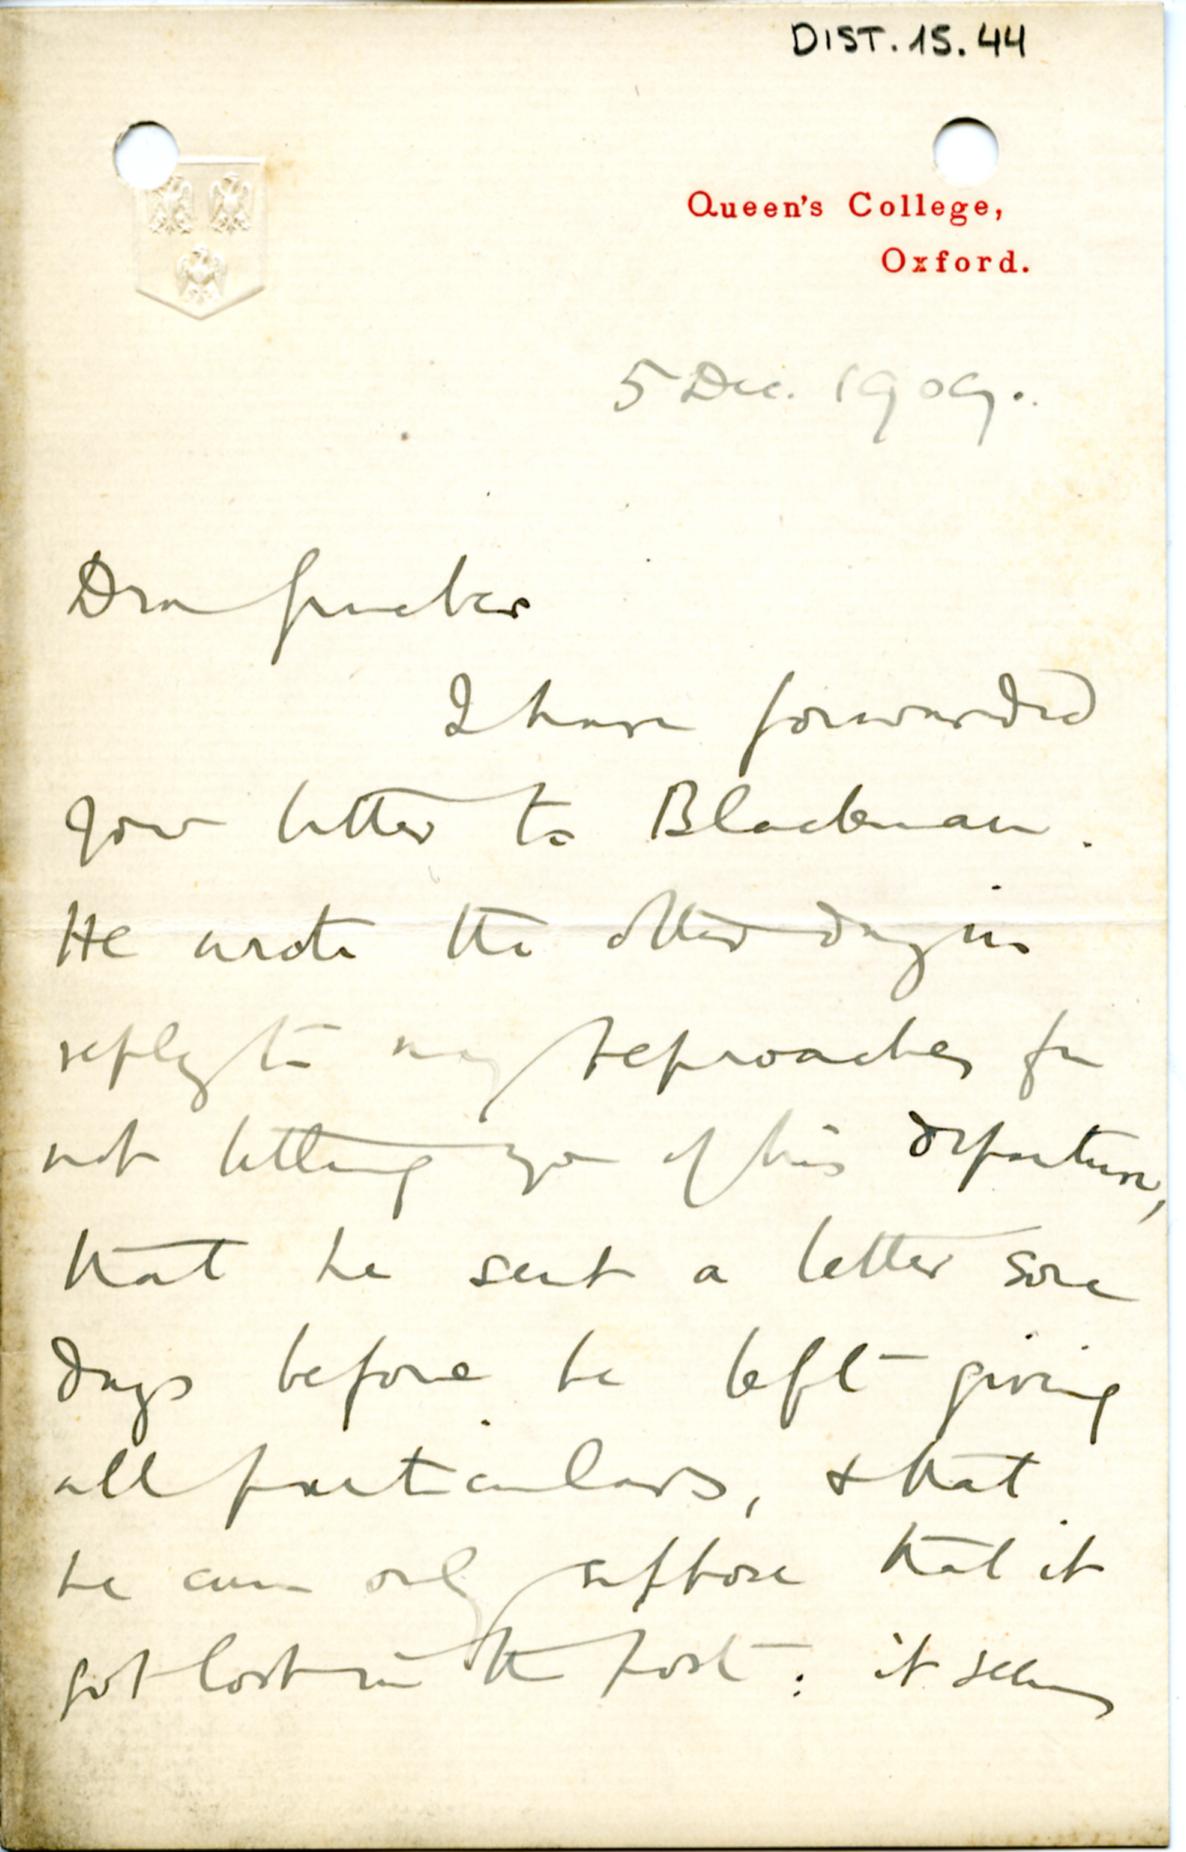 DIST.15.44
Queen's College,
Oxford.
5 Dec. 1909.
Dear
I have forwarded
your letter to Blackman.
He wrote the other day in
reply to my reproaches for
not telling you of his departure,
that he sent a letter some
days before he left giving
all particulars, & that
he can only suppose that it
got lost in the post: it seems